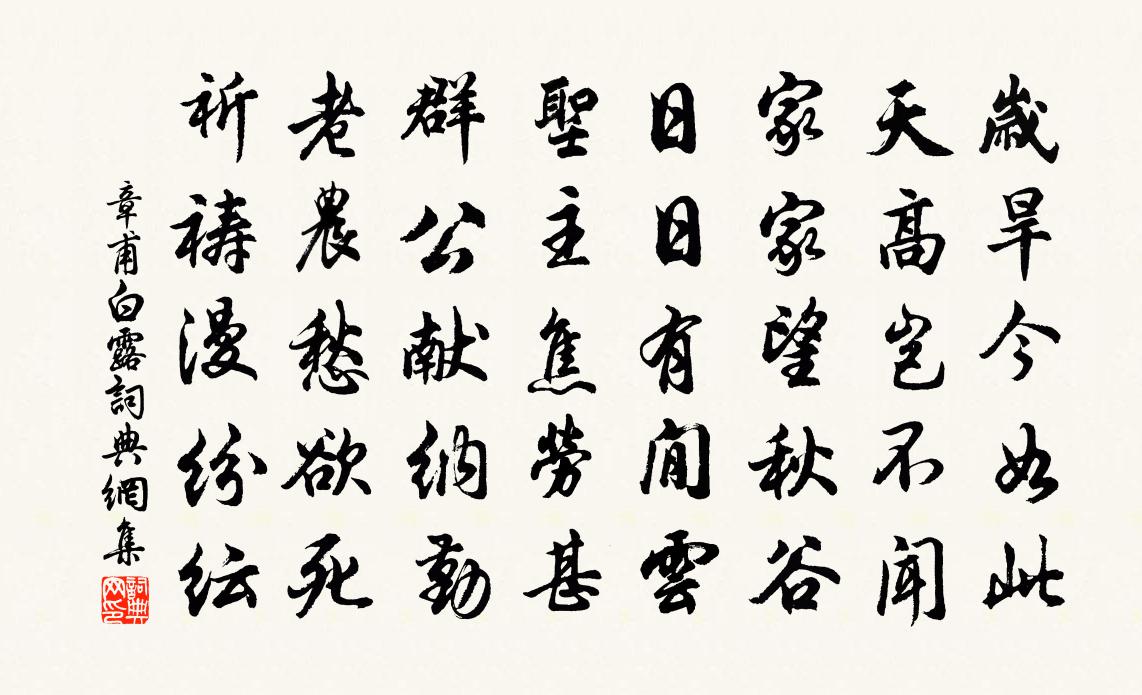 歲旱今如此
天高豈不聞
家家望秋谷
日日有閒雲
聖主焦勞甚
群公献納勤
老農愁欲死
祈禱漫紛紜
章甫白露詞典網集